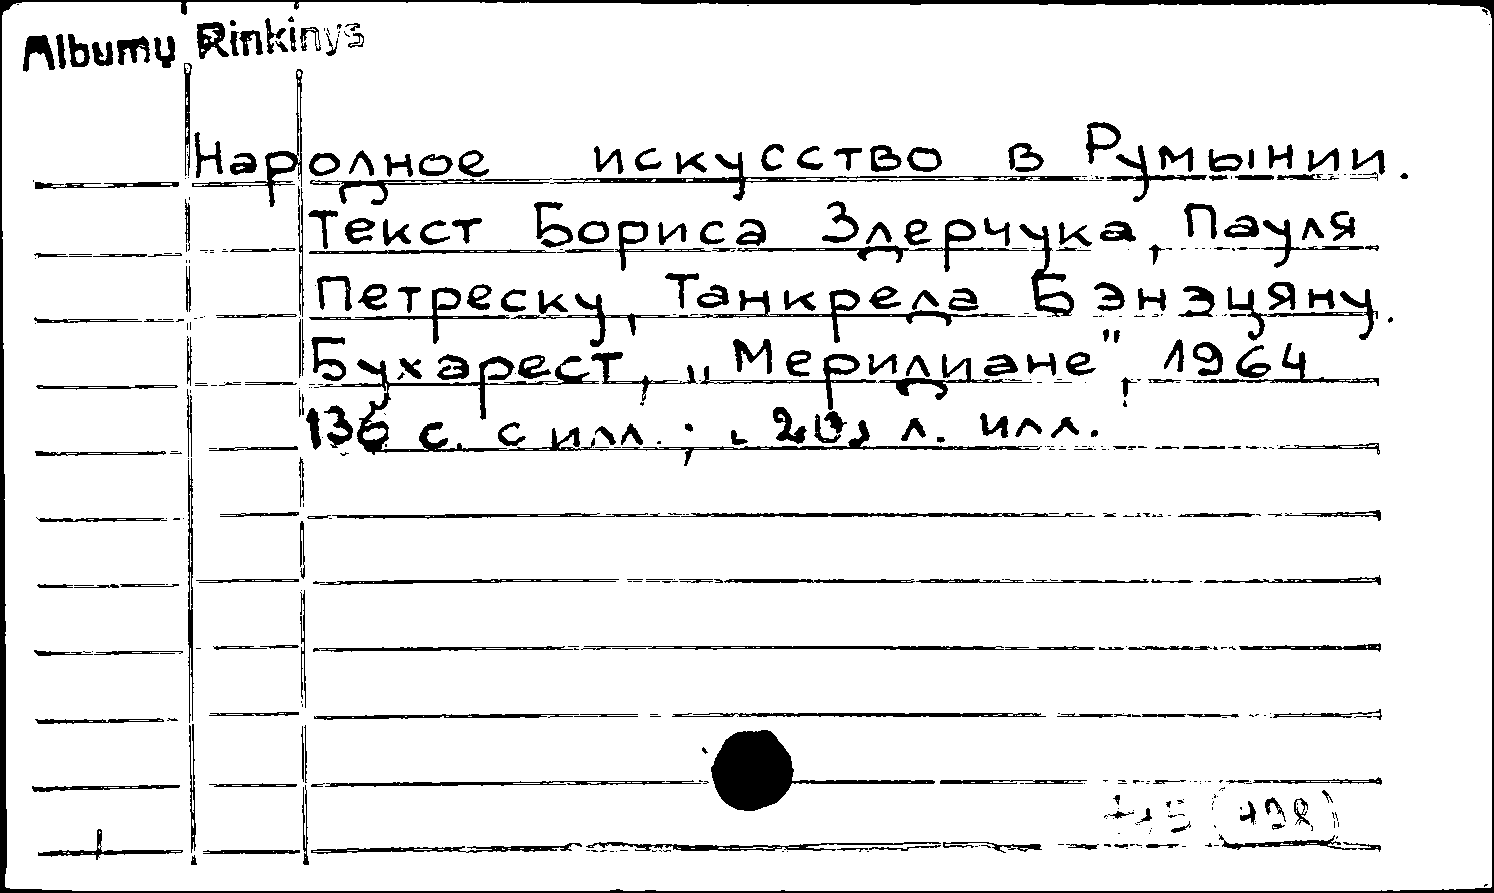 Albumų Rinkinys
Народное искусство в Румынии.
Текст Бориса Здерчука, Пауля
Петреску, Танкреда Бэнэцяну.
Бухарест, „Меридиане", 1964
136 с. с илл.; л. илл.